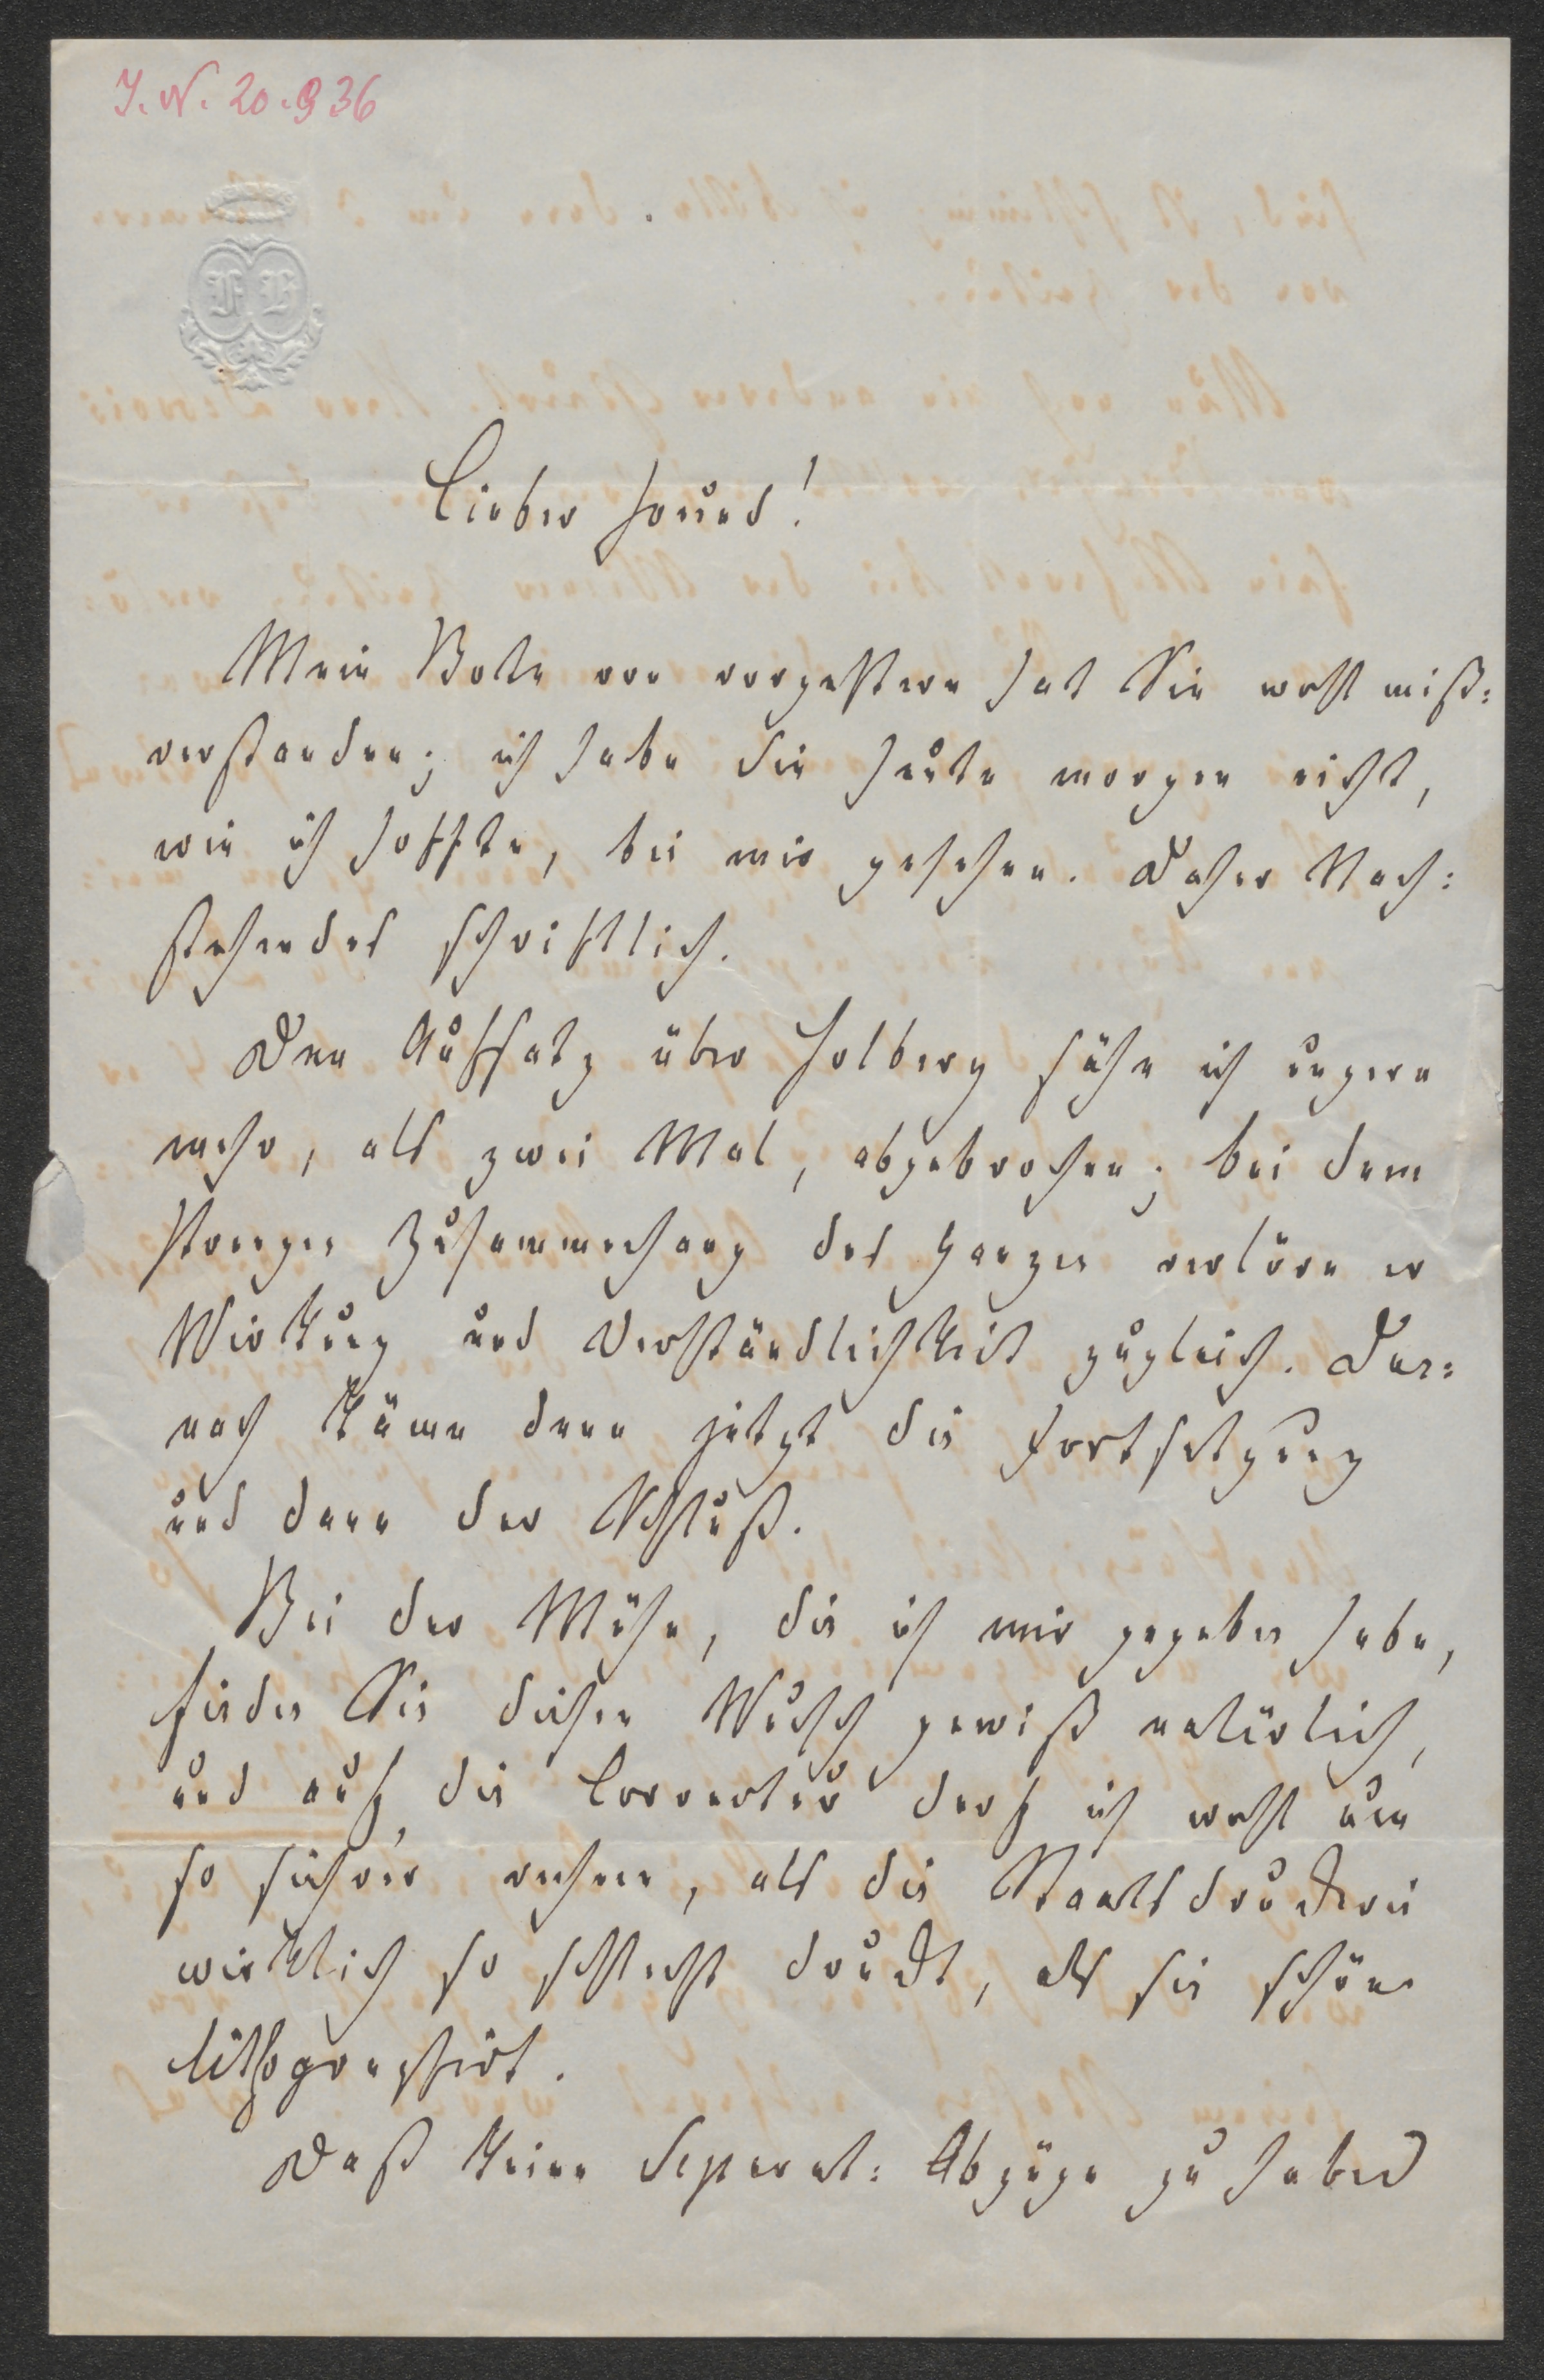 I. N. 20.936
FB
Lieber Freund!
Mein Bote von vorgestern hat Sie wohl miß-
verstanden; ich habe Sie heute morgen nicht,
wie ich hoffte, bei mir gesehen. Daher Nach-
stehendes schriftlich.
Den Aufsatz über Holberg sähe ich ungern
mehr, als zwei Mal, abgebrochen; bei dem
strengen Zusammenhang des Ganzen verlöre er
Wirkung und Verständlichkeit zugleich. Dar-
nach käme denn jetzt die Fortsetzung
und dann der Schluß.
Bei der Mühe, die ich mir gegeben habe,
finden Sie diesen Wunsch gewiß natürlich,
und auf die Correctur darf ich wohl um
so sichrer rechnen, als die Staatsdruckerei
wirklich so schlecht druckt, als sie schön
lithographirt.
Daß keine Separat-Abzüge zu haben